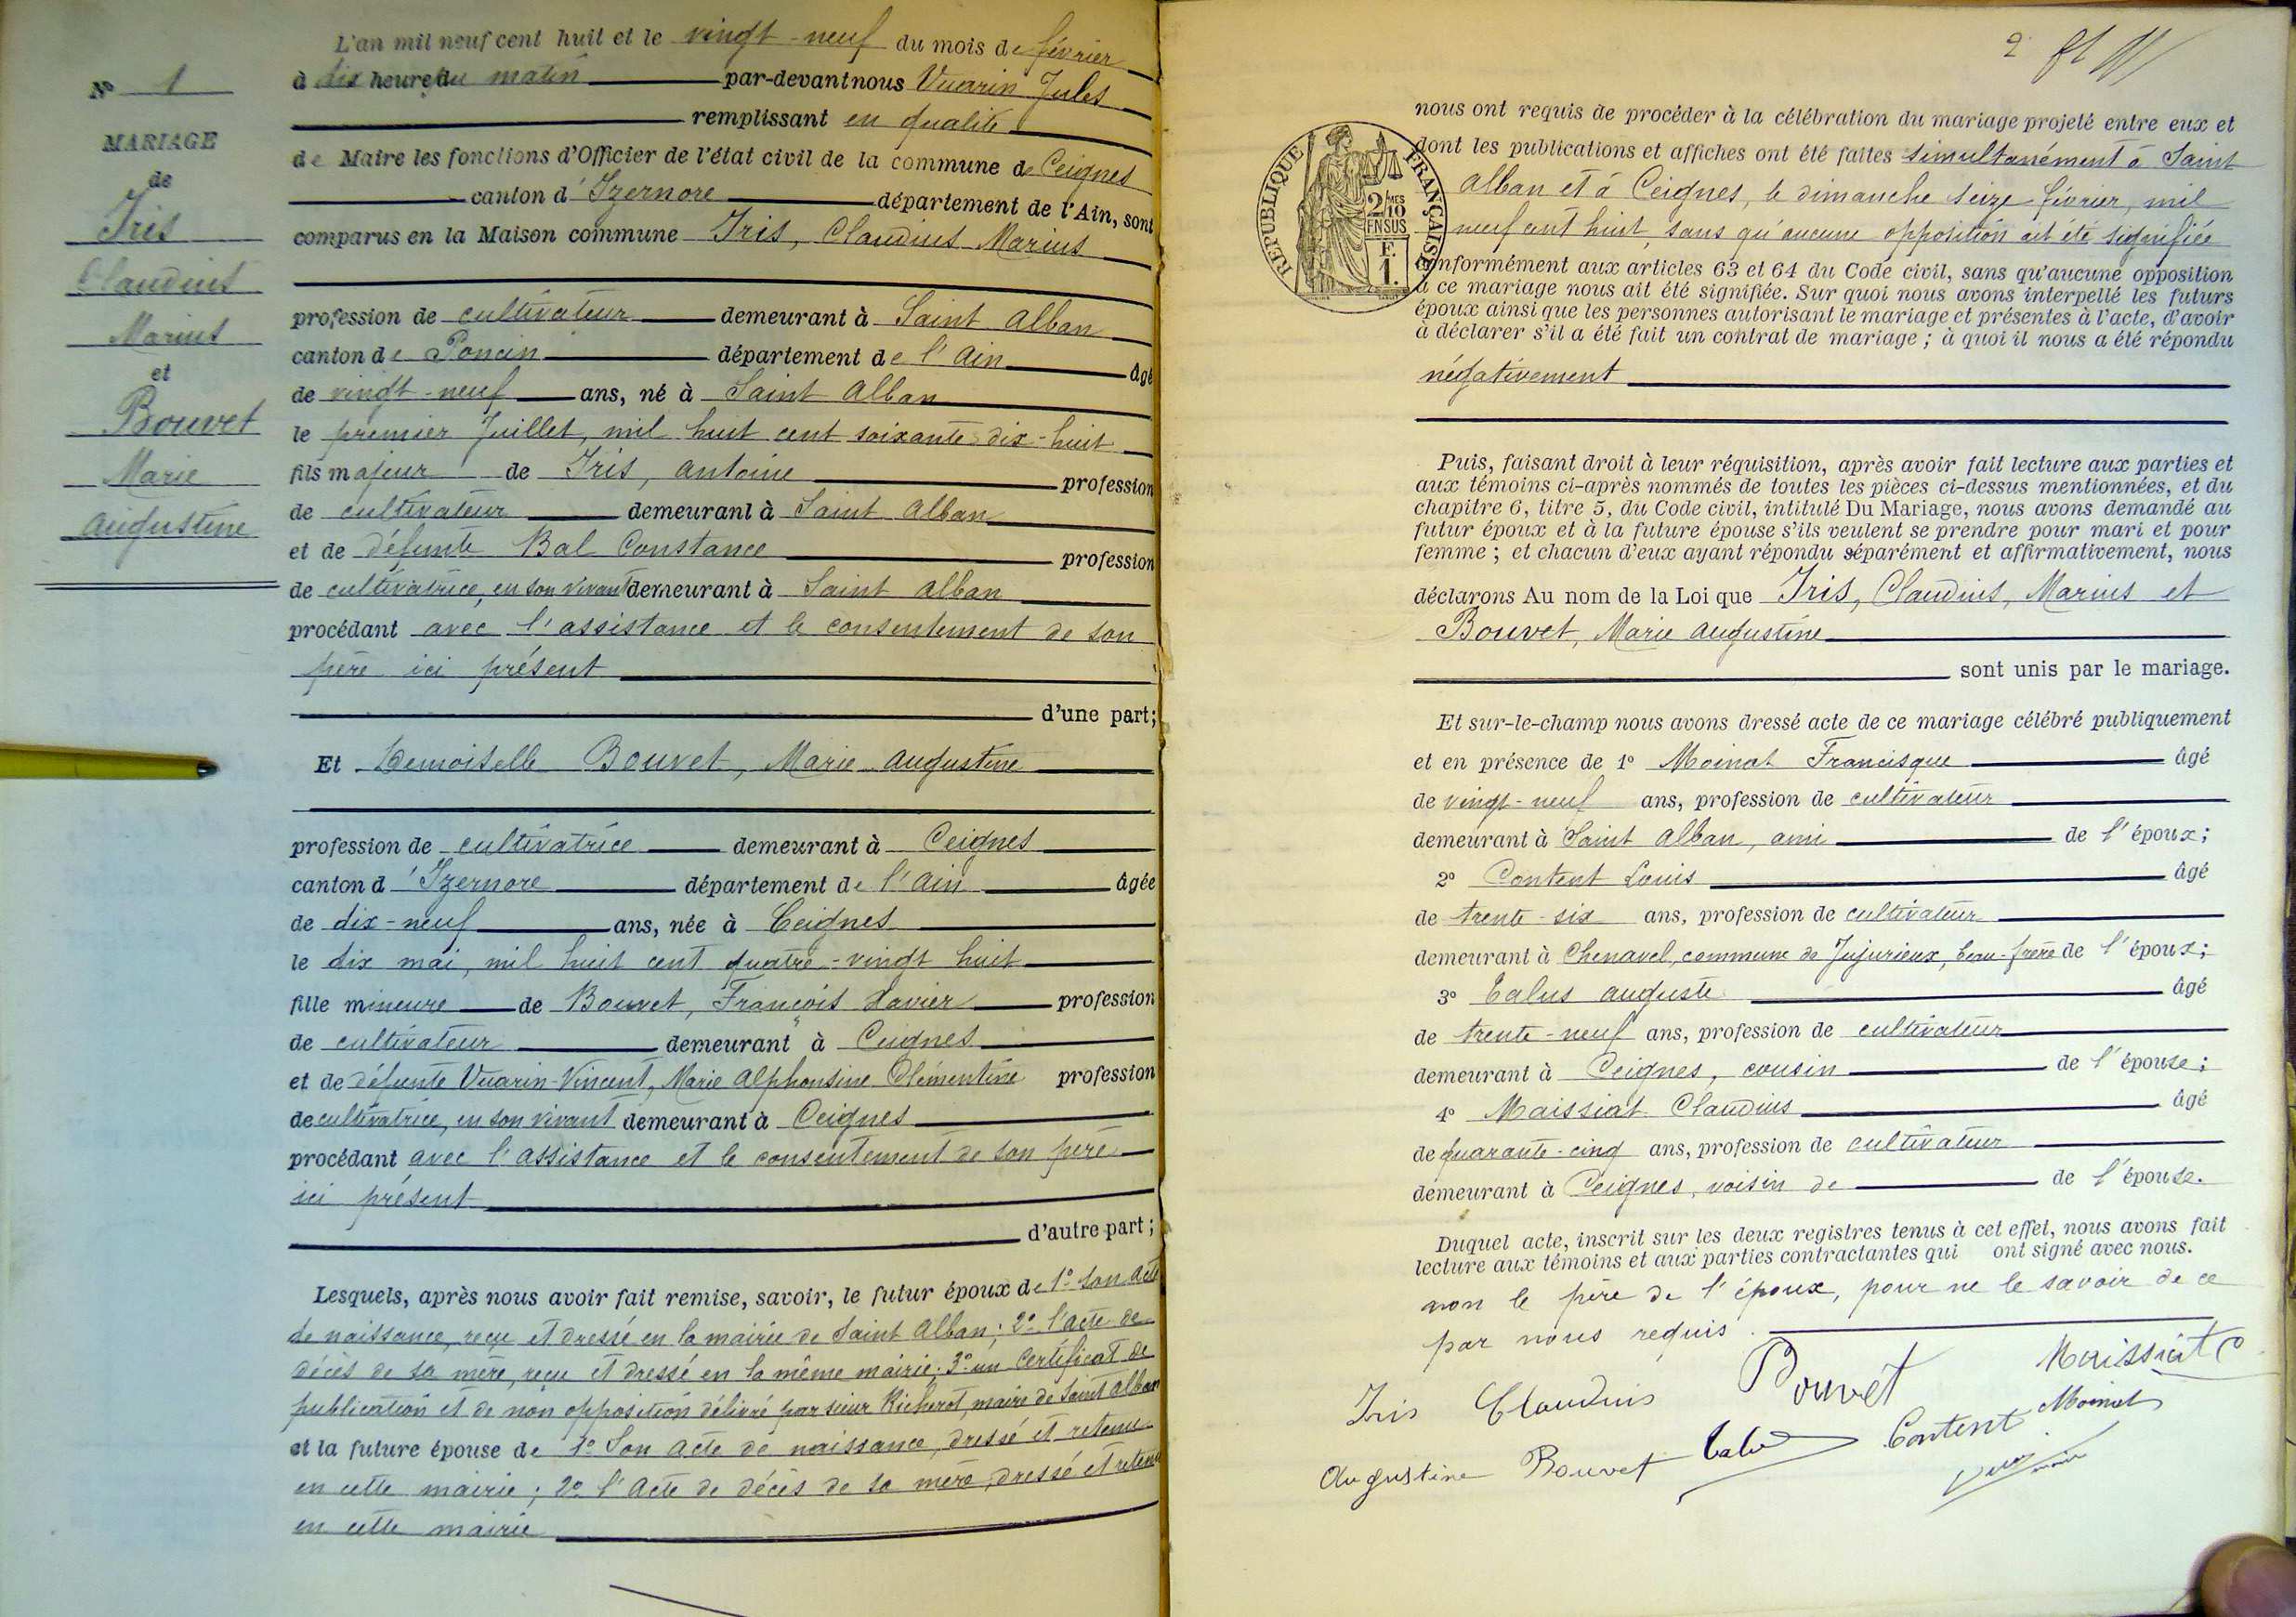 L'an mil neuf cent huit et le vingt-neuf du mois de février
à dix heures du matin par-devant nous Vuarin Jules
remplissant en qualité
de Maire les fonctions d'Officier de l'état civil de la commune de Ceignes
canton d'Izernore département de l'Ain, sont
comparus en la Maison commune Iris, Claudius Marius
profession de cultivateur demeurant à Saint Alban
canton de Poncin département de l'Ain âgé
de vingt-neuf ans, né à Saint Alban
le premier Juillet, mil huit cent soixante dix-huit
fils majeur de Iris, Antoine profession
de cultivateur demeurant à Saint Alban
et de défunte Bal Constance profession
de cultivatrice, en son vivant demeurant à Saint Alban
procédant avec l'assistance et le consentement de son
père ici présent
d'une part;
Et Demoiselle Bouvet, Marie Augustine
profession de cultivatrice demeurant à Ceignes
canton d'Izernore département de l'Ain âgée
de dix-neuf ans, née à Ceignes
le dix mai, mil huit cent quatre-vingt huit
fille mineure de Bouvet, François Xavier profession
de cultivateur demeurant à Ceignes
et de défunte Vuarin-Vincent, Marie Alphonsine Clémentine profession
de cultivatrice, en son vivant demeurant à Ceignes
procédant avec l'assistance et le consentement de son père
ici présent
d'autre part;
Lesquels, après nous avoir fait remise, savoir, le futur époux de 1º son acte
de naissance, reçu et dressé en la mairie de Saint Alban; 2º l'acte de
décès de sa mère, reçu et dressé en la même mairie; 3º un certificat de
publication et de non opposition délivré par sieur Richerot, maire de Saint Alban
et la future épouse de 1º Son acte de naissance, dressé et retenu
en cette mairie; 2º l'acte de décès de sa mère, dressé et retenu
en cette mairie
Nº 1
MARIAGE
de
Iris
Claudius
Marius
et
Bouvet
Marie
Augustine
2
RÉPUBLIQUE FRANÇAISE
2/10 MES
EN SUS
F.
1.
nous ont requis de procéder à la célébration du mariage projeté entre eux et
dont les publications et affiches ont été faites simultanément à Saint
Alban et à Ceignes, le dimanche seize février, mil
neuf cent huit, sans qu'aucune opposition ait été signifiée
conformément aux articles 63 et 64 du Code civil, sans qu'aucune opposition
à ce mariage nous ait été signifiée. Sur quoi nous avons interpellé les futurs
époux ainsi que les personnes autorisant le mariage et présentes à l'acte, d'avoir
à déclarer s'il a été fait un contrat de mariage; à quoi il nous a été répondu
négativement
Puis, faisant droit à leur réquisition, après avoir fait lecture aux parties et
aux témoins ci-après nommés de toutes les pièces ci-dessus mentionnées, et du
chapitre 6, titre 5, du Code civil, intitulé Du Mariage, nous avons demandé au
futur époux et à la future épouse s'ils veulent se prendre pour mari et pour
femme; et chacun d'eux ayant répondu séparément et affirmativement, nous
déclarons Au nom de la Loi que Iris, Claudius, Marius et
Bouvet, Marie Augustine
sont unis par le mariage.
Et sur-le-champ nous avons dressé acte de ce mariage célébré publiquement
et en présence de 1º Moinat Francisque âgé
de vingt-neuf ans, profession de cultivateur
demeurant à Saint Alban, ami de l'époux;
2º Content Louis âgé
de trente-six ans, profession de cultivateur
demeurant à Chenavel, commune de Jujurieux, beau-frère de l'époux;
3º Calus Auguste âgé
de trente-neuf ans, profession de cultivateur
demeurant à Ceignes, cousin de l'épouse;
4º Maissiat Claudius âgé
de quarante-cinq ans, profession de cultivateur
demeurant à Ceignes, voisin de de l'épouse.
Duquel acte, inscrit sur les deux registres tenus à cet effet, nous avons fait
lecture aux témoins et aux parties contractantes qui ont signé avec nous.
non le père de l'époux, pour ne le savoir de ce
par nous requis.
Iris Claudius Bouvet Maissiat C
Augustine Bouvet Calus Content Moinat
Vuarin